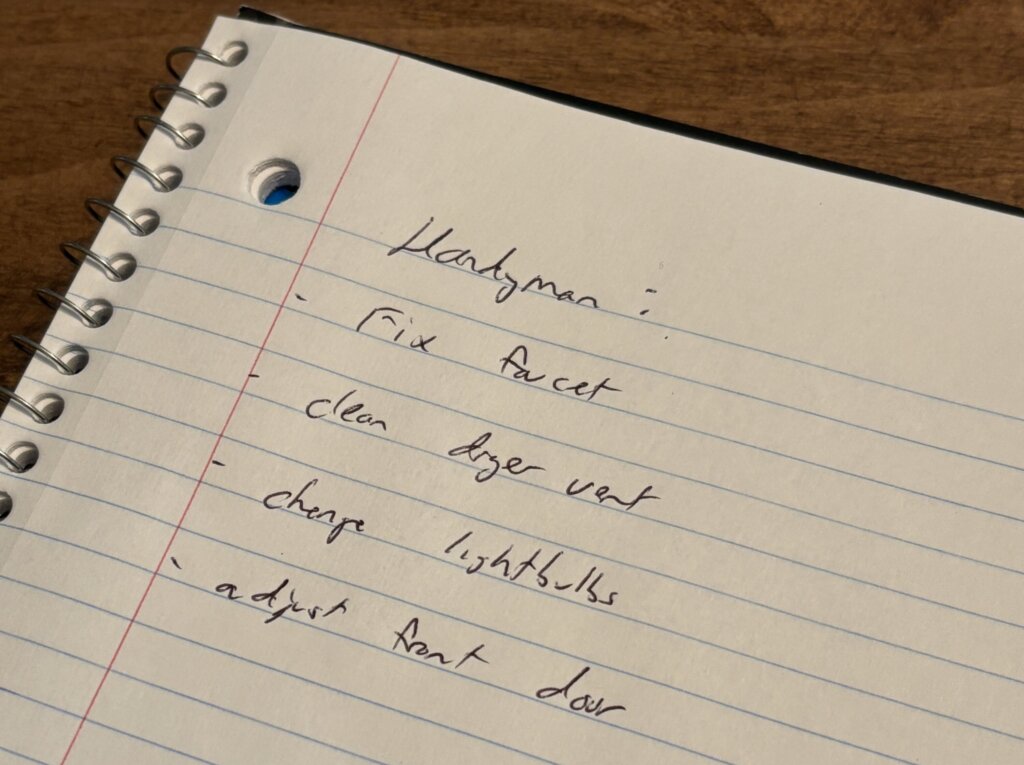 Handyman :
- Fix faucet
- clean dryer vent
- change lightbulbs
- adjust front door